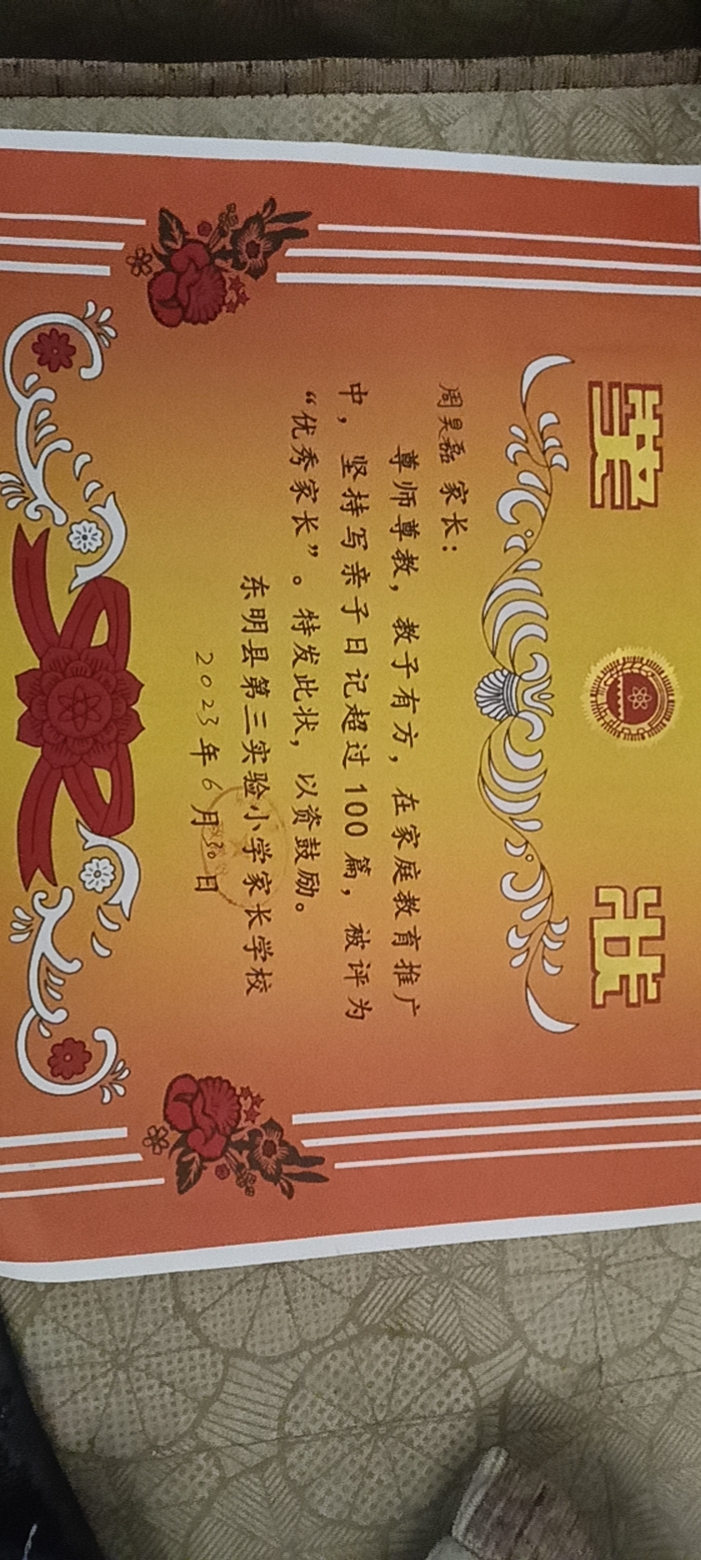 奖状
周昊磊 家长：
尊师尊教，教子有方，在家庭教育推广
中，坚持写亲子日记超过100篇，被评为
“优秀家长”。特发此状，以资鼓励。
东明县第三实验小学家长学校
2023年6月30日